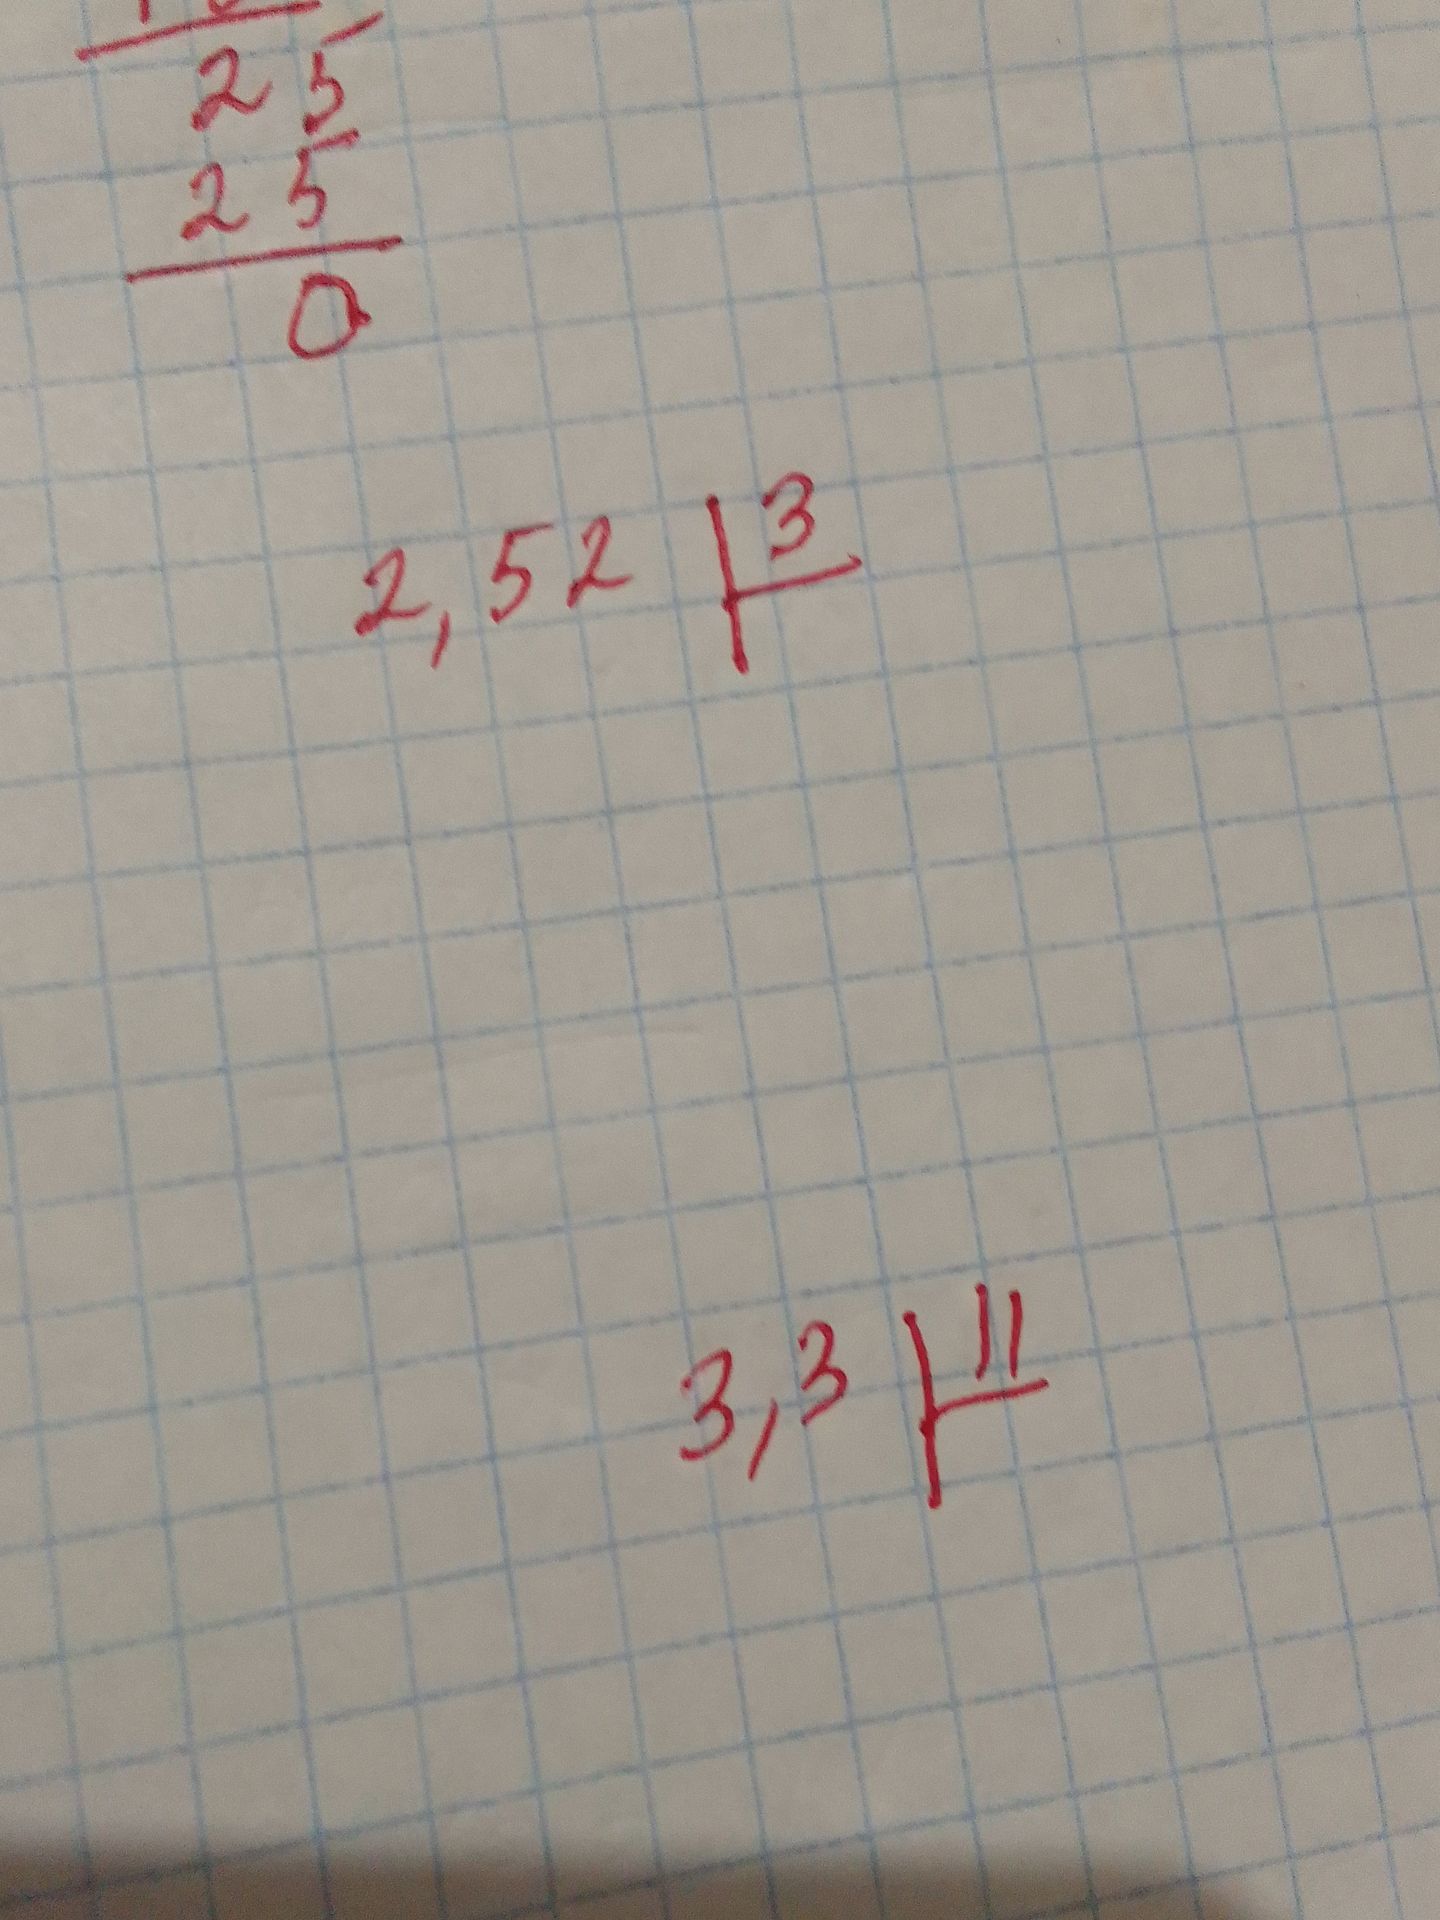 25
25
0
2,52 3
3,3 11